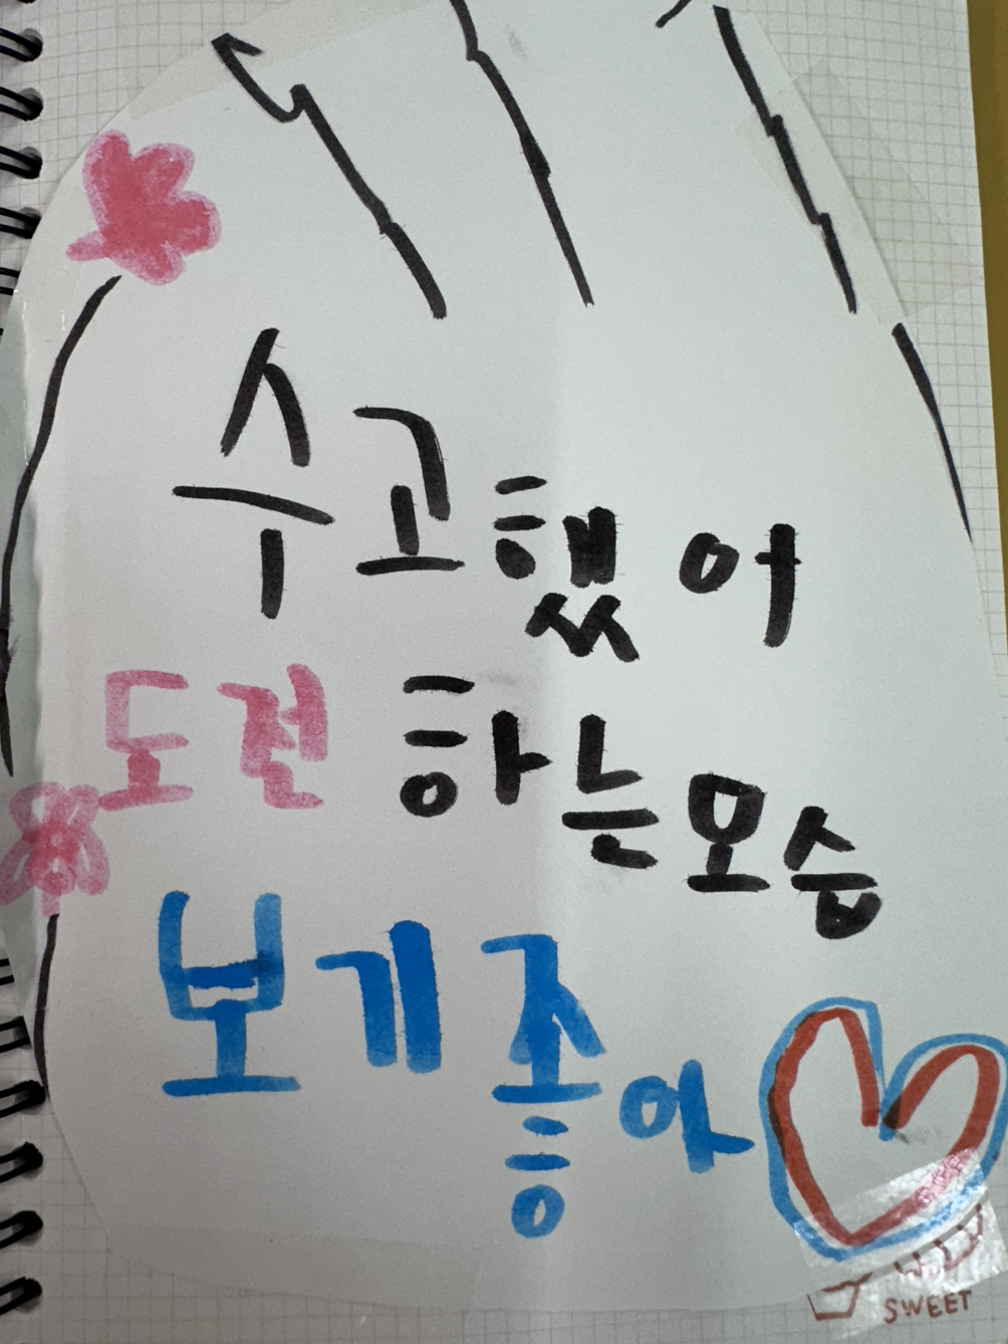 수고했어
도전 하는모습
보기좋아
SWEET